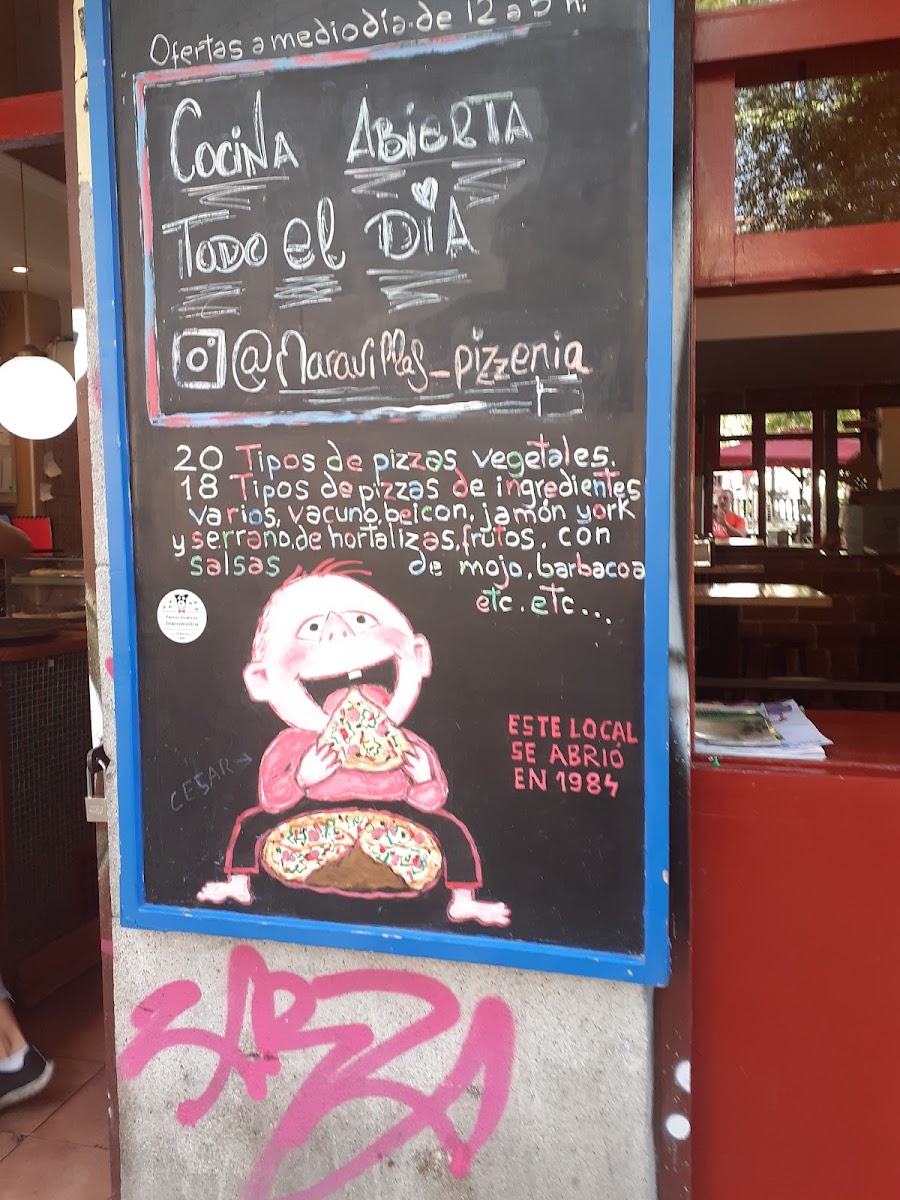 Ofertas a mediodía. de 12 a 5 h.
Cocina Abierta
Todo el Día
@Maravillas_pizzeria
20 Tipos de pizzas vegetales.
18 Tipos de pizzas de ingredientes
varios, vacuno, beicon, jamón york
y serrano, de hortalizas, frutos, con
salsas de mojo, barbacoa
etc. etc...
ESTE LOCAL
SE ABRIÓ
EN 1984
CESAR→